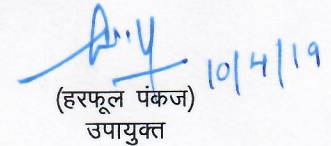 10/4/19
(हरफूल पंकज)
उपायुक्त